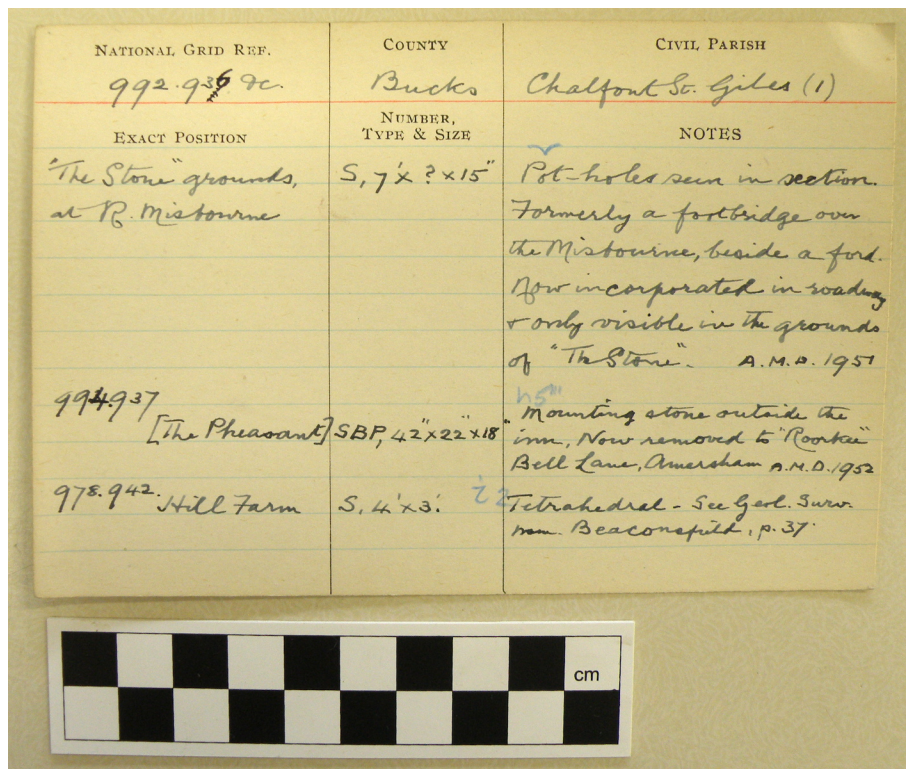 NATIONAL GRID REF. COUNTY CIVIL PARISH
992.936 &c. Bucks Chalfont St. Giles (1)
EXACT POSITION NUMBER, TYPE & SIZE NOTES
"The Stone" grounds, S, 7'x ? x 15" Pot-holes seen in section.
at R. Misbourne Formerly a footbridge over
the Misbourne, beside a ford.
Now incorporated in roadway
& only visible in the grounds
of "The Stone". A.M.D. 1951
994.937
[The Pheasant] SBP, 42"x22"x18" Mounting stone outside the
inn, Now removed to "Roorkee"
Bell Lane, Amersham A.M.D. 1952
978.942. Hill Farm S, 4'x3'. Tetrahedral - See Geol. Surv.
mem. Beaconsfield, p. 37.
cm